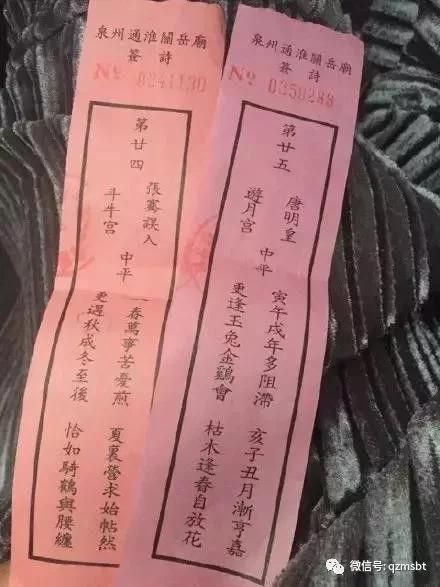 泉州通淮關岳廟
簽詩
№ 0241130
第廿四
張騫誤入
斗牛宮
中平
一春萬事苦憂煎
夏裏營求始帖然
更遇秋成冬至後
恰如騎鶴與腰纏
泉州通淮關岳廟
簽詩
№ 0358288
第廿五
唐明皇
遊月宮
中平
寅午戌年多阻滯
亥子丑月漸亨嘉
更逢玉兔金鷄會
枯木逢春自放花
微信号: qzmsbt